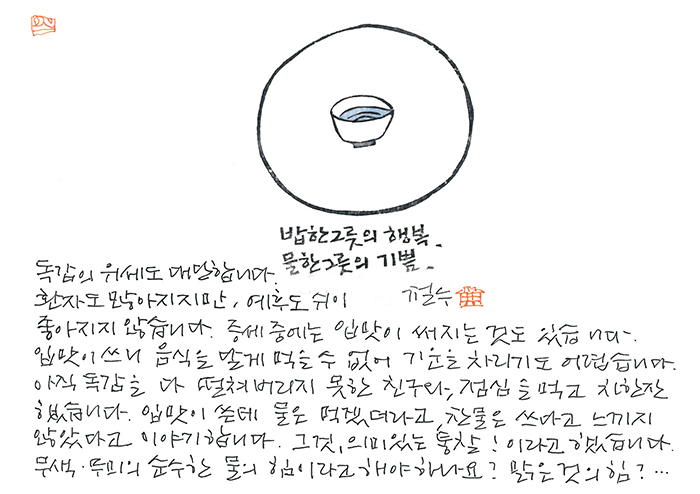 밥한그릇의 행복.
물한그릇의 기쁨.
철수
독감의 위세도 대단합니다.
환자도 많아지지만, 예후도 쉬이
좋아지지 않습니다. 증세 중에는 입맛이 써지는 것도 있습니다.
입맛이 쓰니 음식을 달게 먹을 수 없어 기운을 차리기도 어렵습니다.
아직 독감을 다 떨쳐버리지 못한 친구와, 점심을 먹고 차한잔
했습니다. 입맛이 쓴데 물은 먹겠더라고, 찬물은 쓰다고 느끼지
않았다고 이야기합니다. 그것, 의미있는 통찰! 이라고 했습니다.
무색·무미의 순수한 물의 힘이라고 해야 하나요? 맑은 것의 힘? …